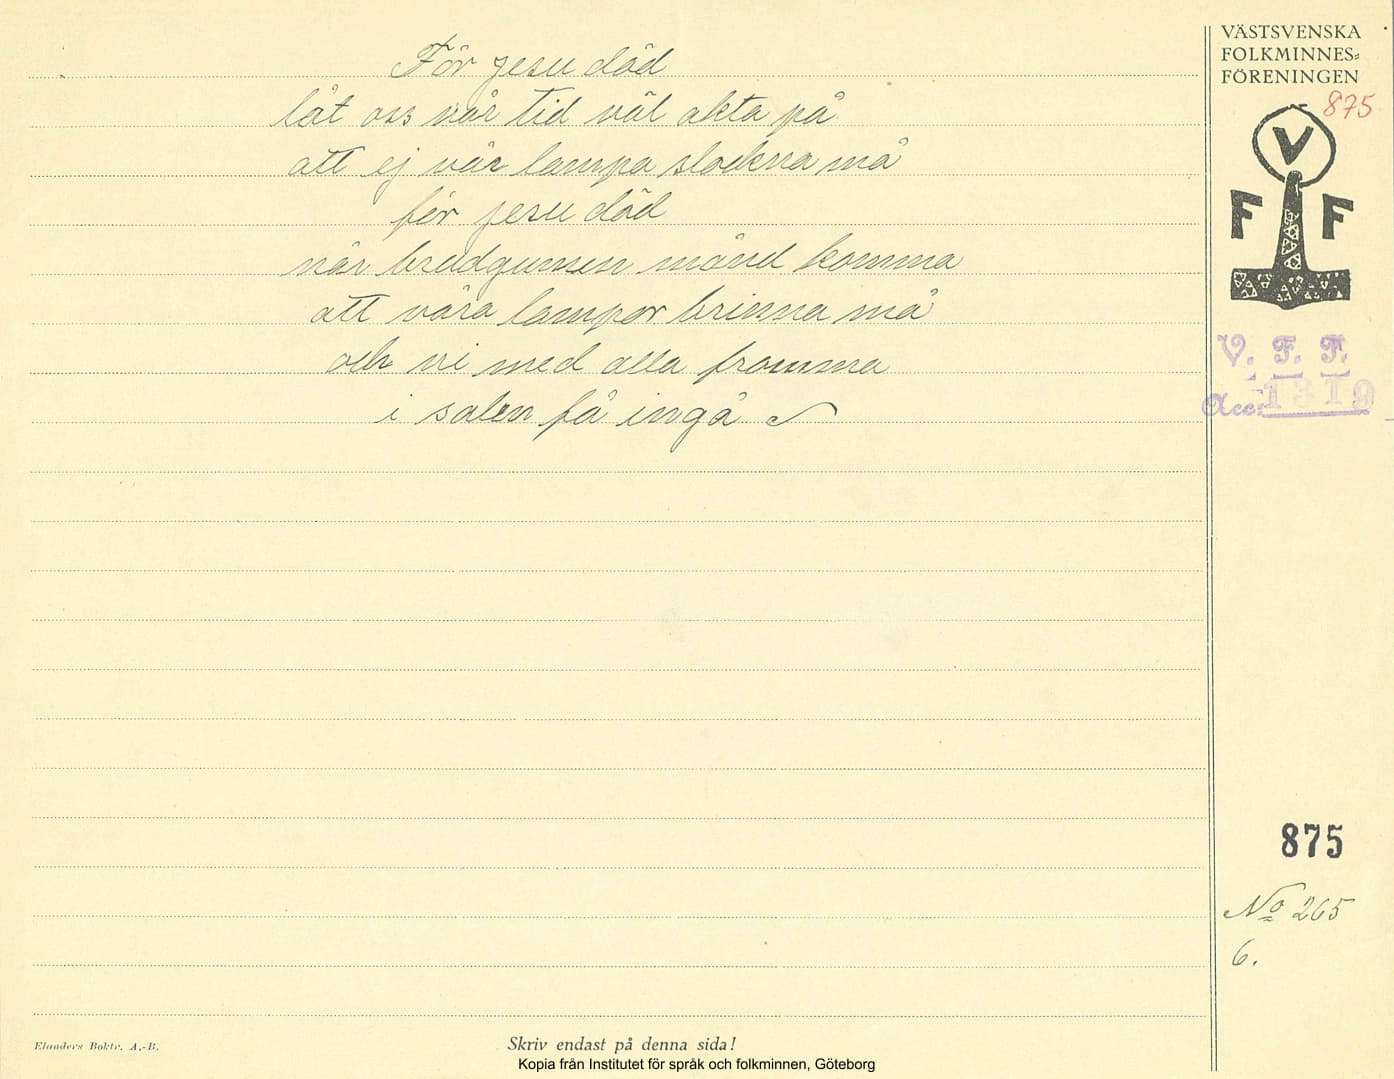 För jesu död
låt oss vår tid väl akta på
att ej vår lampa slockna må
för jesu död
när brudgumen månd komma
att våra lampor brinna må
och vi med alla fromma
i salen få ingå
VÄSTSVENSKA
FOLKMINNES-
FÖRENINGEN
875
V
F F
V. F. F.
Acc. 1319
875
No 265
6.
Elanders Boktr. A.-B.
Skriv endast på denna sida!
Kopia från Institutet för språk och folkminnen, Göteborg